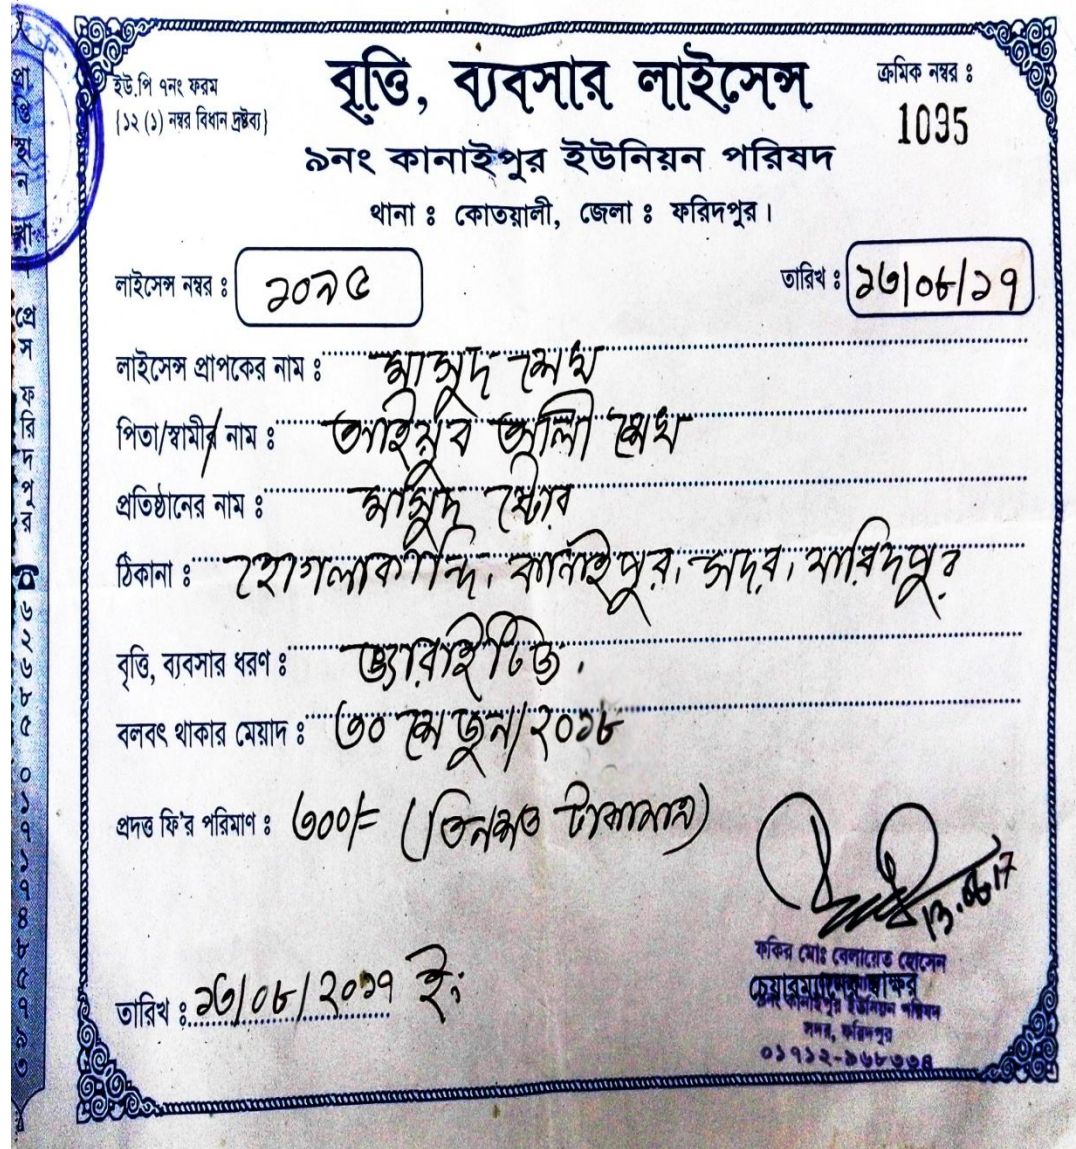 ইউ.পি ৭নং ফরম
{১২ (১) নম্বর বিধান দ্রষ্টব্য}
বৃত্তি, ব্যবসার লাইসেন্স
ক্রমিক নম্বর ঃ
1095
৯নং কানাইপুর ইউনিয়ন পরিষদ
থানা ঃ কোতয়ালী, জেলা ঃ ফরিদপুর।
লাইসেন্স নম্বর ঃ ১০৯৫
তারিখ ঃ ১৩/০৮/১৭
লাইসেন্স প্রাপকের নাম ঃ মাসুদ শেখ
পিতা/স্বামীর নাম ঃ আইয়ুব আলী শেখ
প্রতিষ্ঠানের নাম ঃ মাসুদ ষ্টোর
ঠিকানা ঃ হোগলাকান্দি, কানাইপুর, সদর, ফরিদপুর
বৃত্তি, ব্যবসার ধরণ ঃ ভ্যারাইটিজ.
বলবৎ থাকার মেয়াদ ঃ ৩০ শে জুন/২০১৮
প্রদত্ত ফি'র পরিমাণ ঃ ৩০০/= (তিনশত টাকামাত্র)
13.08.17
ফকির মোঃ বেলায়েত হোসেন
চেয়ারম্যানের স্বাক্ষর
৯নং কানাইপুর ইউনিয়ন পরিষদ
সদর, ফরিদপুর
তারিখ ঃ ১৩/০৮/২০১৭ ইং
প্রেস ফরিদপুর